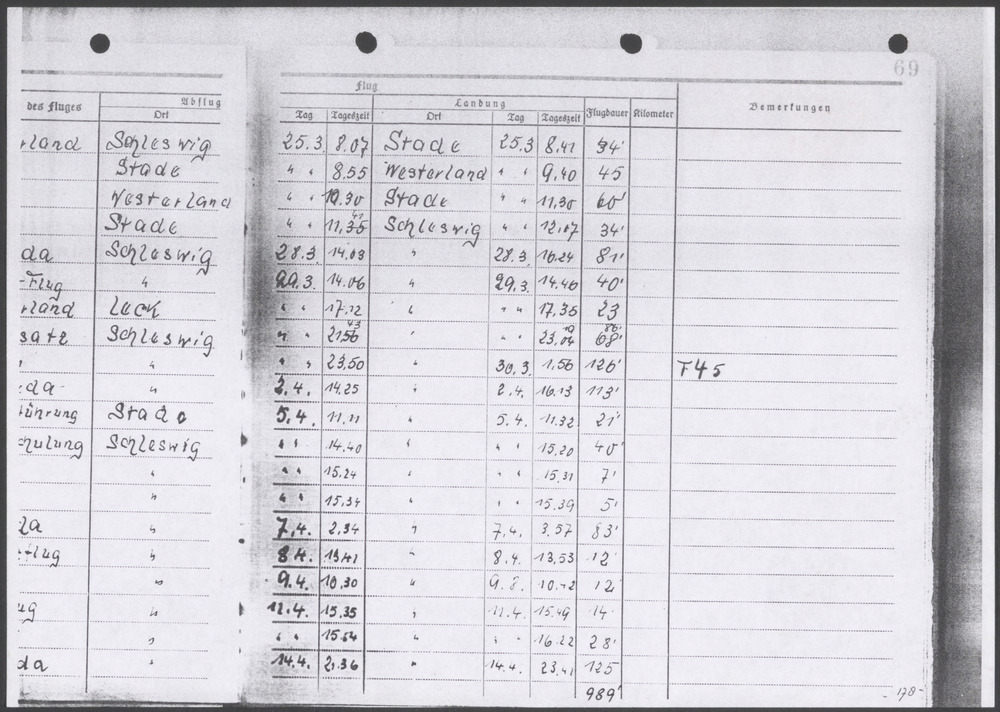 69
Flug
des Fluges Abflug Landung Flugdauer Kilometer Bemerkungen
Ort Tag Tageszeit Ort Tag Tageszeit
rland Schleswig 25.3 8.07 Stade 25.3 8.41 34'
Stade " " 8.55 Westerland " " 9.40 45
Westerland " " 10.30 Stade " " 11,30 60'
Stade " " 11,35 Schleswig " " 12.07 34'
da Schleswig 28.3. 14.03 " 28.3. 16.24 81'
-Flug " 29.3. 14.06 " 29.3. 14.46 40'
rland Leck " " 17.12 " " " 17,35 23
satz Schleswig " " 21.56 " " " 23.04 68'
" " " 23,50 " 30.3. 1,56 126' F45
da " 2.4. 14.25 " 2.4. 16.13 113'
ührung Stade 5.4. 11.11 " 5.4. 11.32 21'
chulung Schleswig " " 14.40 " " " 15.20 40'
" " " 15.24 " " " 15.31 7'
" " " 15.34 " " " 15.39 5'
da " 7.4. 2.34 " 7.4. 3.57 83'
-flug " 8.4. 13.41 " 8.4. 13,53 12'
" 9.4. 10.30 " 9.8. 10.42 12
ug " 12.4. 15.35 " 12.4. 15.49 14
" " " 15.54 " " " 16.22 28'
da " 14.4. 21.36 " 14.4. 23.41 125
989'
-178-